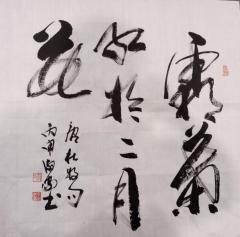 霜葉
紅於二月
花
唐杜牧句
丙申